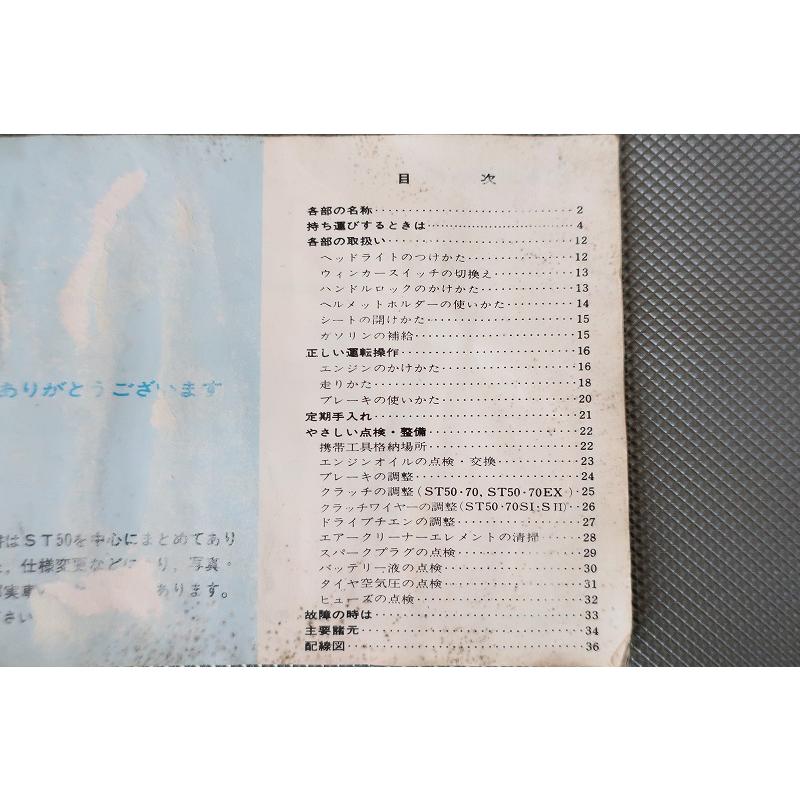 ありがとうございます
はST50を中心にまとめてあり
仕様変更など
り、写真・
実車
あります。
さい
目 次
各部の名称 2
持ち運びするときは 4
各部の取扱い 12
ヘッドライトのつけかた 12
ウィンカースイッチの切換え 13
ハンドルロックのかけかた 13
ヘルメットホルダーの使いかた 14
シートの開けかた 15
ガソリンの補給 15
正しい運転操作 16
エンジンのかけかた 16
走りかた 18
ブレーキの使いかた 20
定期手入れ 21
やさしい点検・整備 22
携帯工具格納場所 22
エンジンオイルの点検・交換 23
ブレーキの調整 24
クラッチの調整(ST50・70, ST50・70EX) 25
クラッチワイヤーの調整(ST50・70SI・SⅡ) 26
ドライブチエンの調整 27
エアークリーナーエレメントの清掃 28
スパークプラグの点検 29
バッテリー液の点検 30
タイヤ空気圧の点検 31
ヒューズの点検 32
故障の時は 33
主要諸元 34
配線図 36